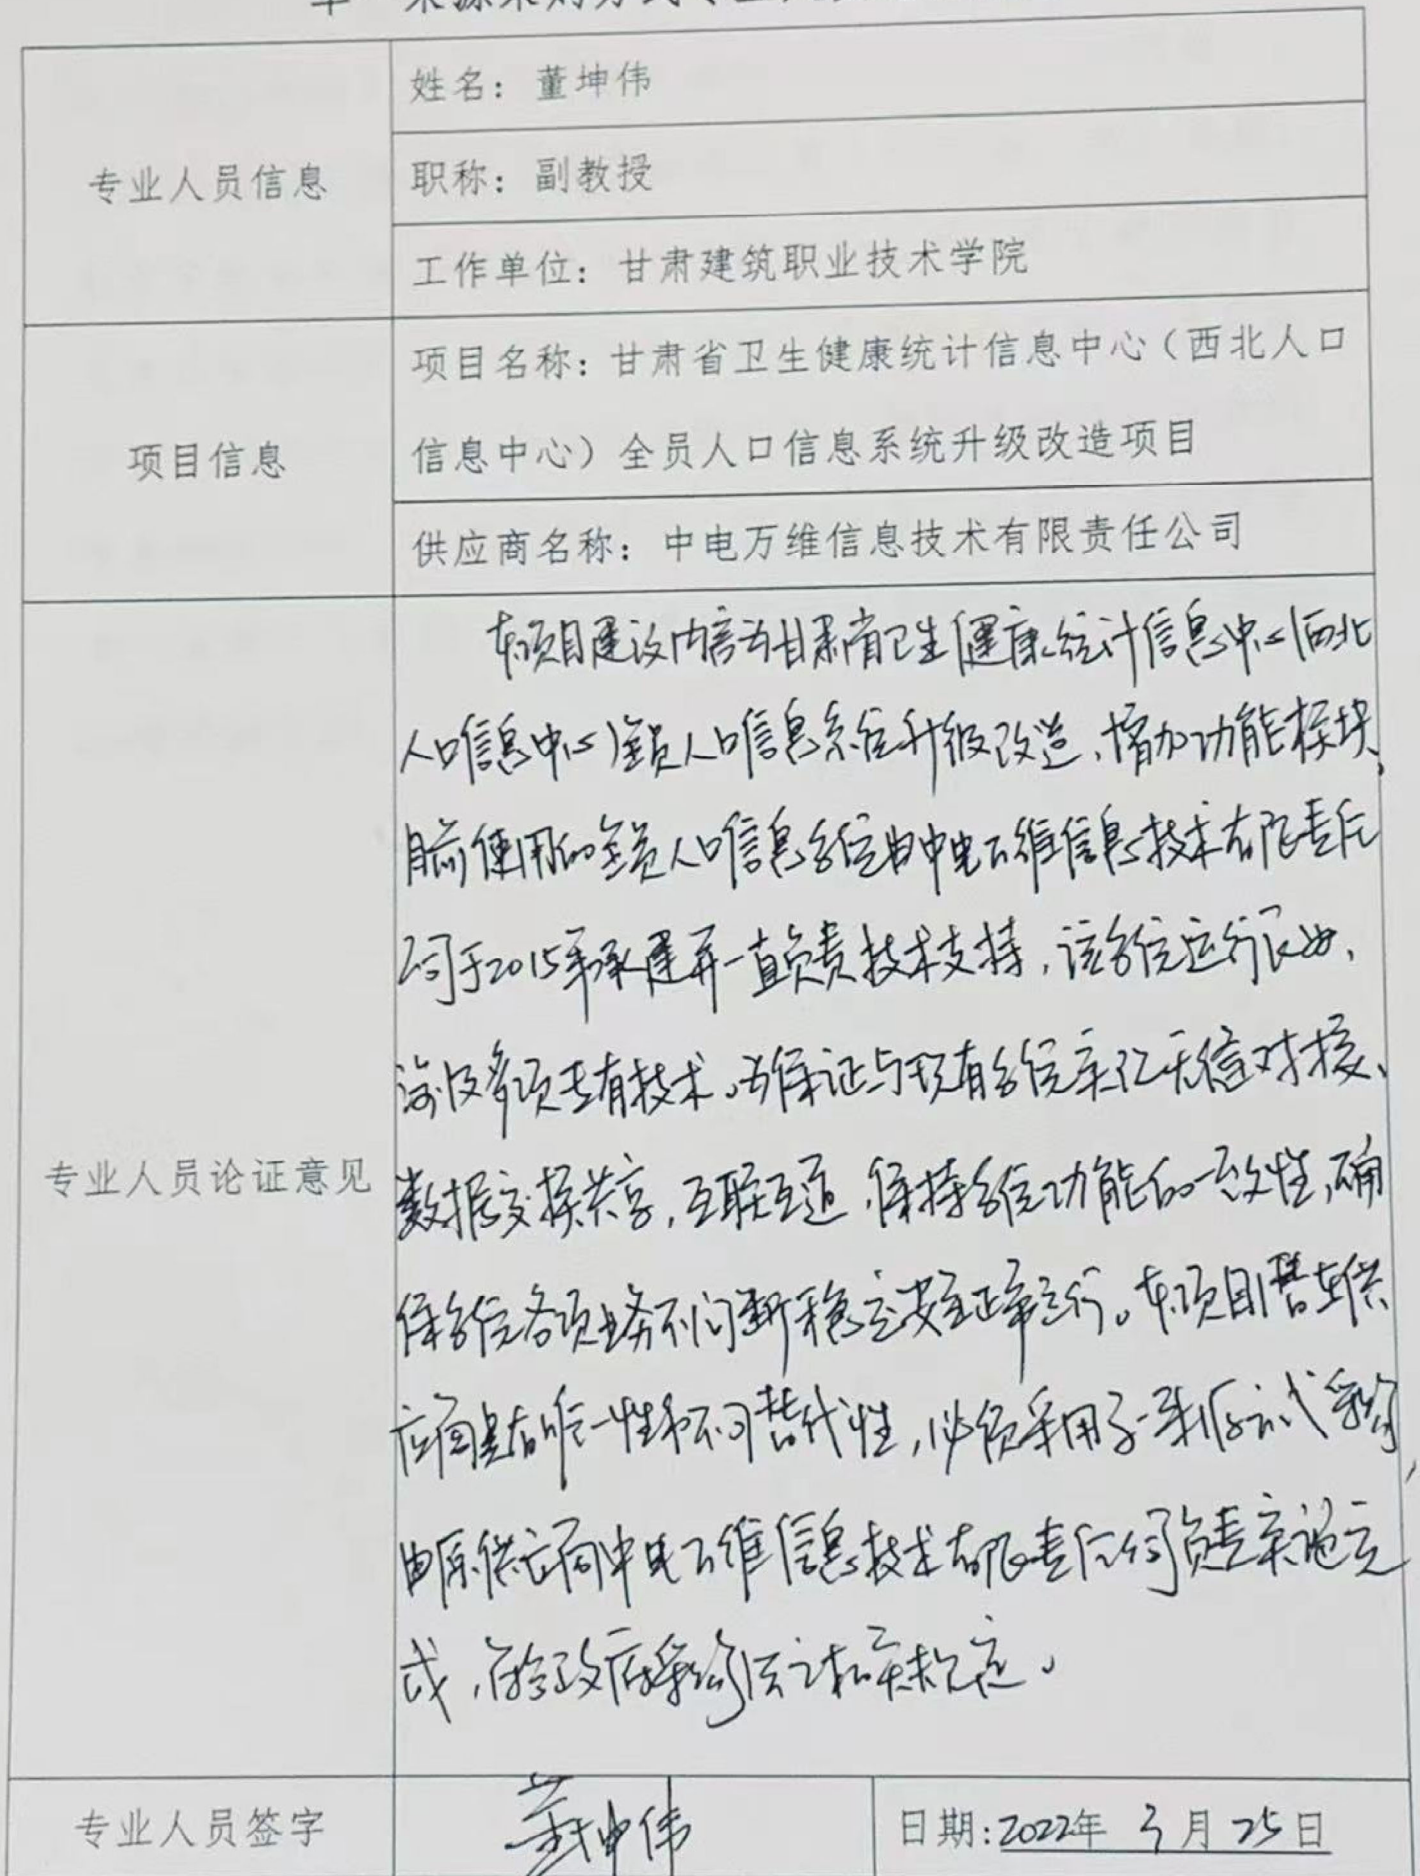 姓名：董坤伟
专业人员信息
职称：副教授
工作单位：甘肃建筑职业技术学院
项目信息
项目名称：甘肃省卫生健康统计信息中心（西北人口
信息中心）全员人口信息系统升级改造项目
供应商名称：中电万维信息技术有限责任公司
专业人员论证意见
本项目建设内容为甘肃省卫生健康统计信息中心（西北
人口信息中心）全员人口信息系统升级改造、增加功能模块，
目前使用的全员人口信息系统由中电万维信息技术有限责任
公司于2015年承建并一直负责技术支持，该系统运行良好，
涉及多项专有技术。为保证与现有系统实现无缝对接、
数据交换共享，互联互通，保持系统功能的一致性，确
保系统各项业务不间断稳定安全正常运行。本项目
应商具有唯一性和不可替代性，必须采用单一来源方式采购，
由原供应商中电万维信息技术有限责任公司负责实施完
成，符合政府采购法之相关规定。
专业人员签字
董坤伟
日期：2022年 3月 25日